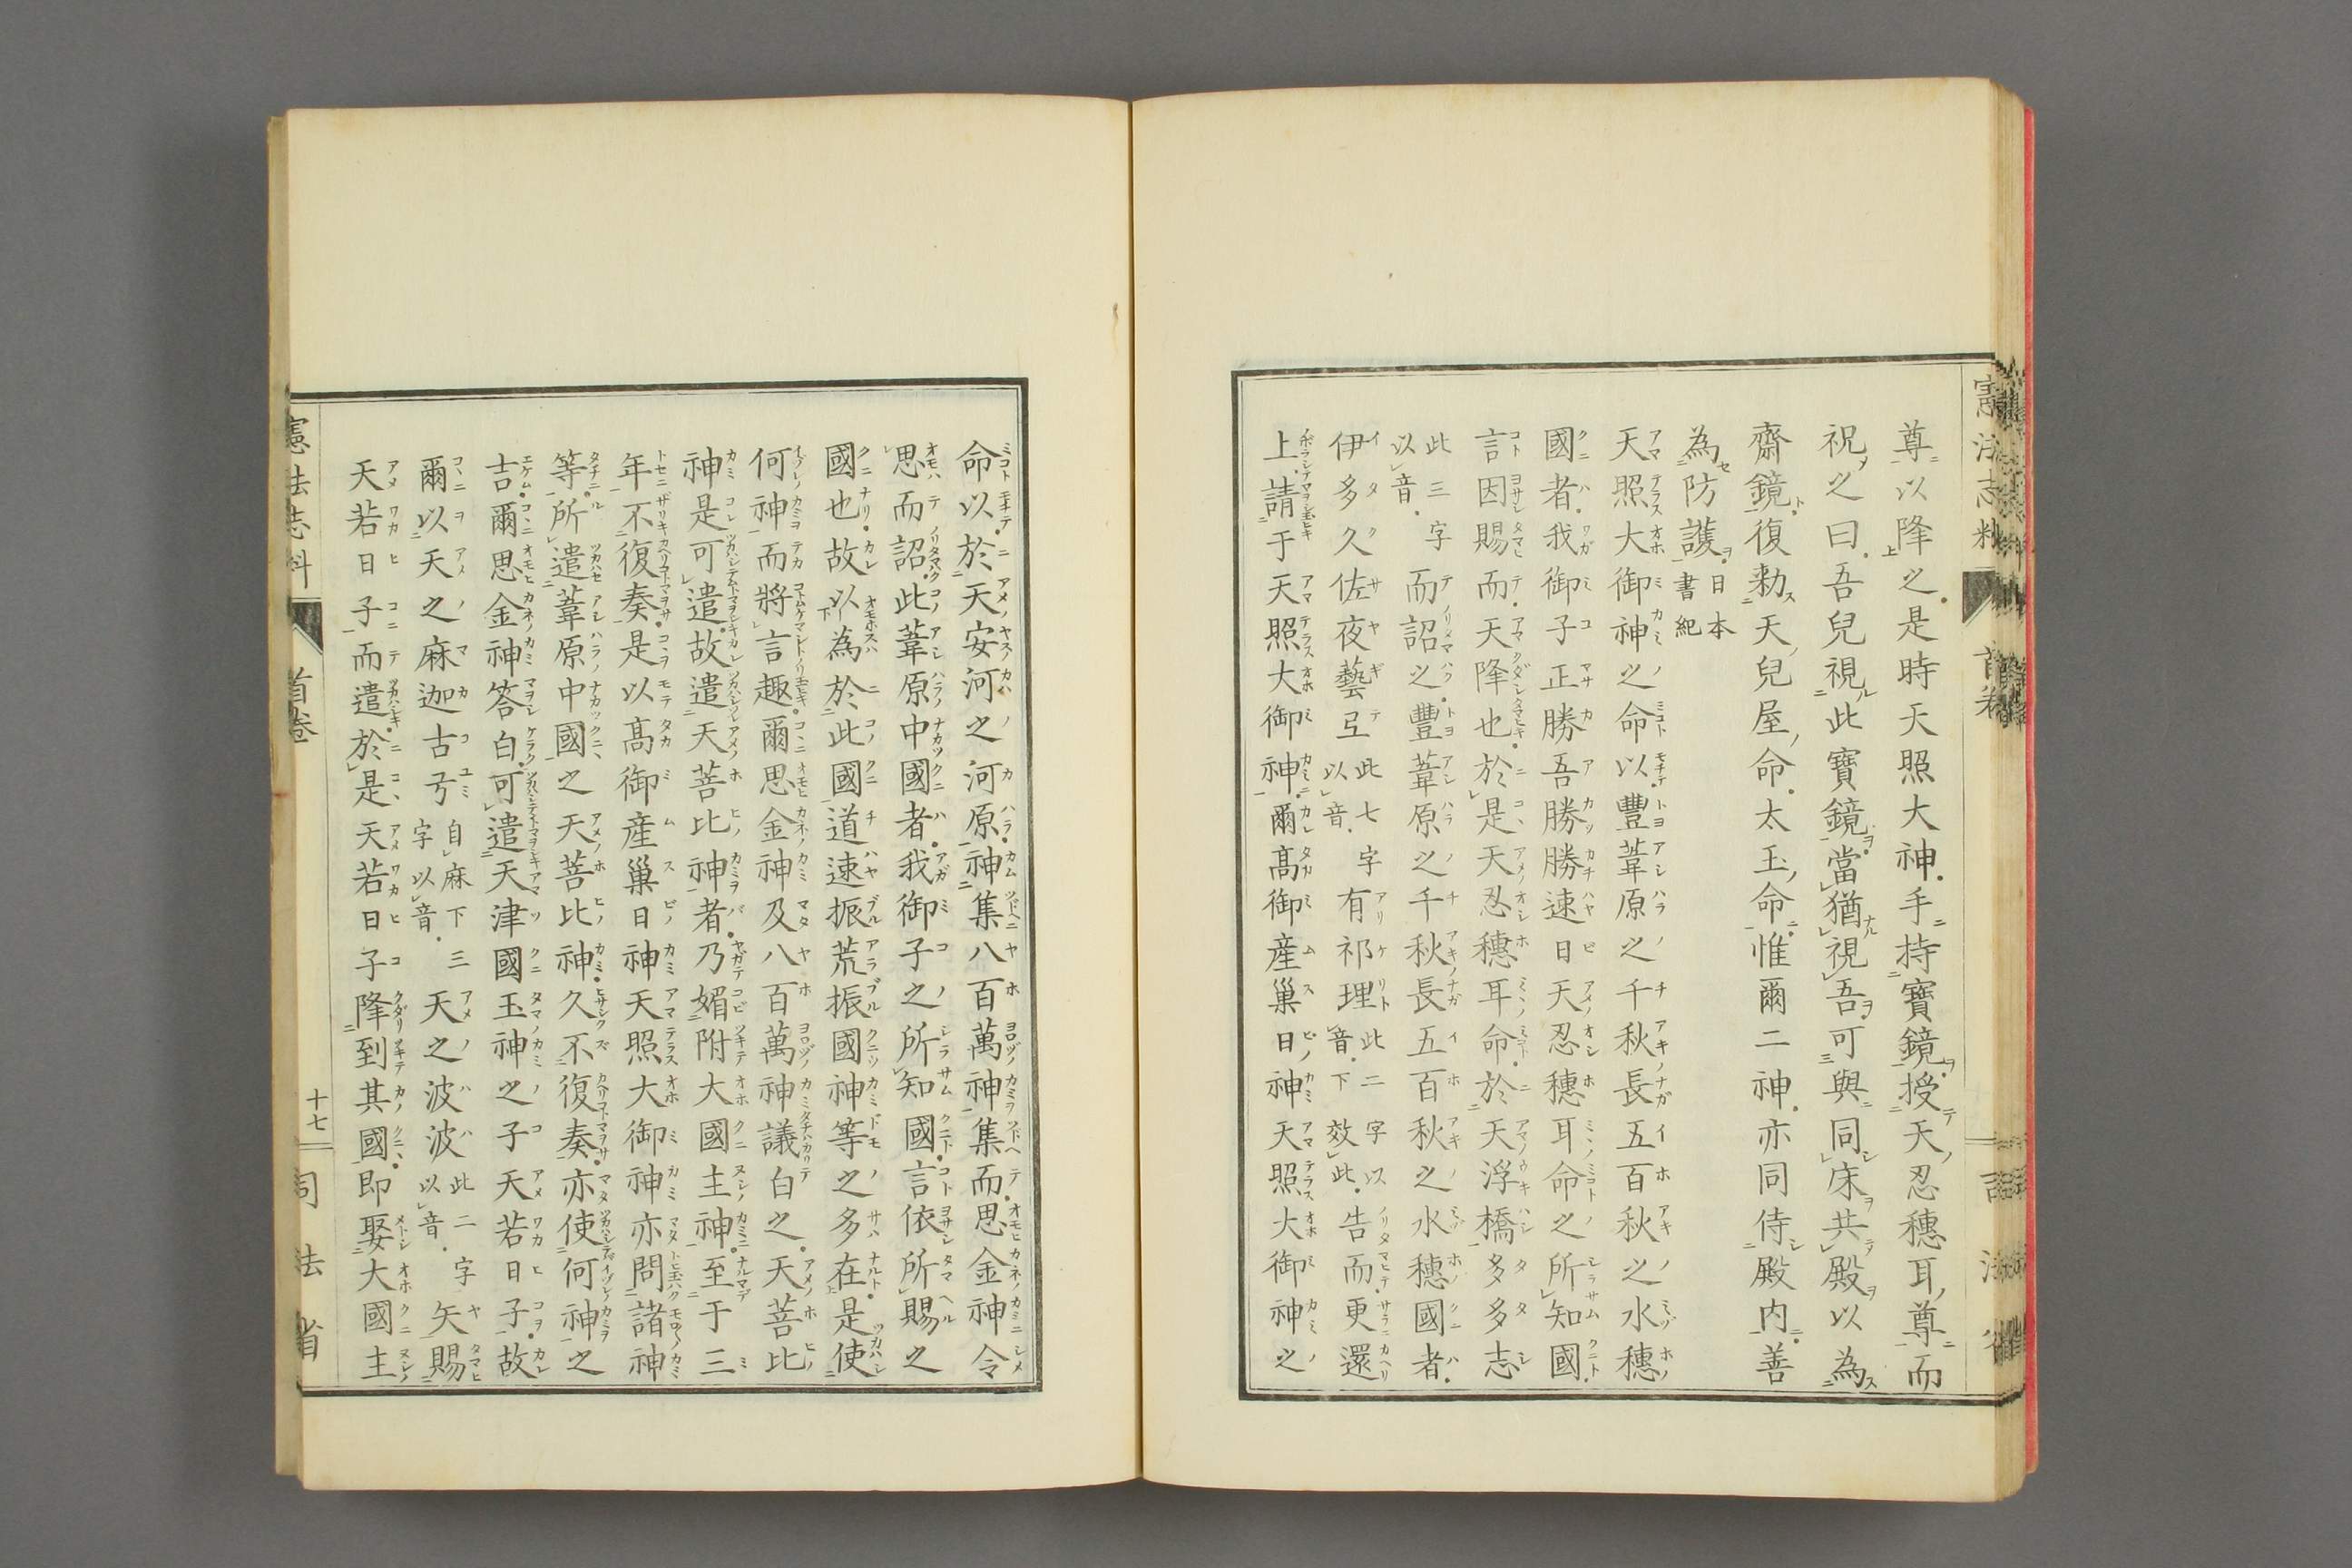 尊以降之是時天照大神手持寶鏡授天忍穗耳尊而
祝之曰吾兒視此寶鏡當猶視吾可與同床共殿以為
齋鏡復勅天兒屋命太玉命惟爾二神亦同侍殿內善
為防護日本書紀
天照大御神之命以豐葦原之千秋長五百秋之水穗
國者我御子正勝吾勝勝速日天忍穗耳命之所知國
言因賜而天降也於是天忍穗耳命於天浮橋多多志
此三字以音而詔之豐葦原之千秋長五百秋之水穗國者
伊多久佐夜藝弖此七字以音有祁理此二字以音下效此告而更還
上請于天照大御神爾髙御産巢日神天照大御神之
命以於天安河之河原神集八百萬神集而思金神令
思而詔此葦原中國者我御子之所知國言依所賜之
國也故以為於此國道速振荒振國神等之多在是使
何神而將言趣爾思金神及八百萬神議白之天菩比
神是可遣故遣天菩比神者乃媚附大國主神至于三
年不復奏是以髙御産巢日神天照大御神亦問諸神
等所遣葦原中國之天菩比神久不復奏亦使何神之
吉爾思金神答白可遣天津國玉神之子天若日子故
爾以天之麻迦古弓自麻下三字以音天之波波此二字以音矢賜
天若日子而遣於是天若日子降到其國即娶大國主
憲法志料
首卷
十七
司法省